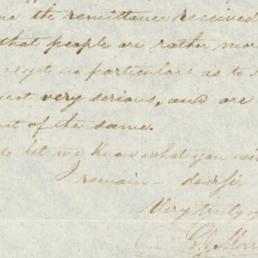 the remittance received
that people are rather mor
as yet no particulars as to
not very serious, and are
of the same.
to let me know what you wi
I remain - dear Sir
Very truly y